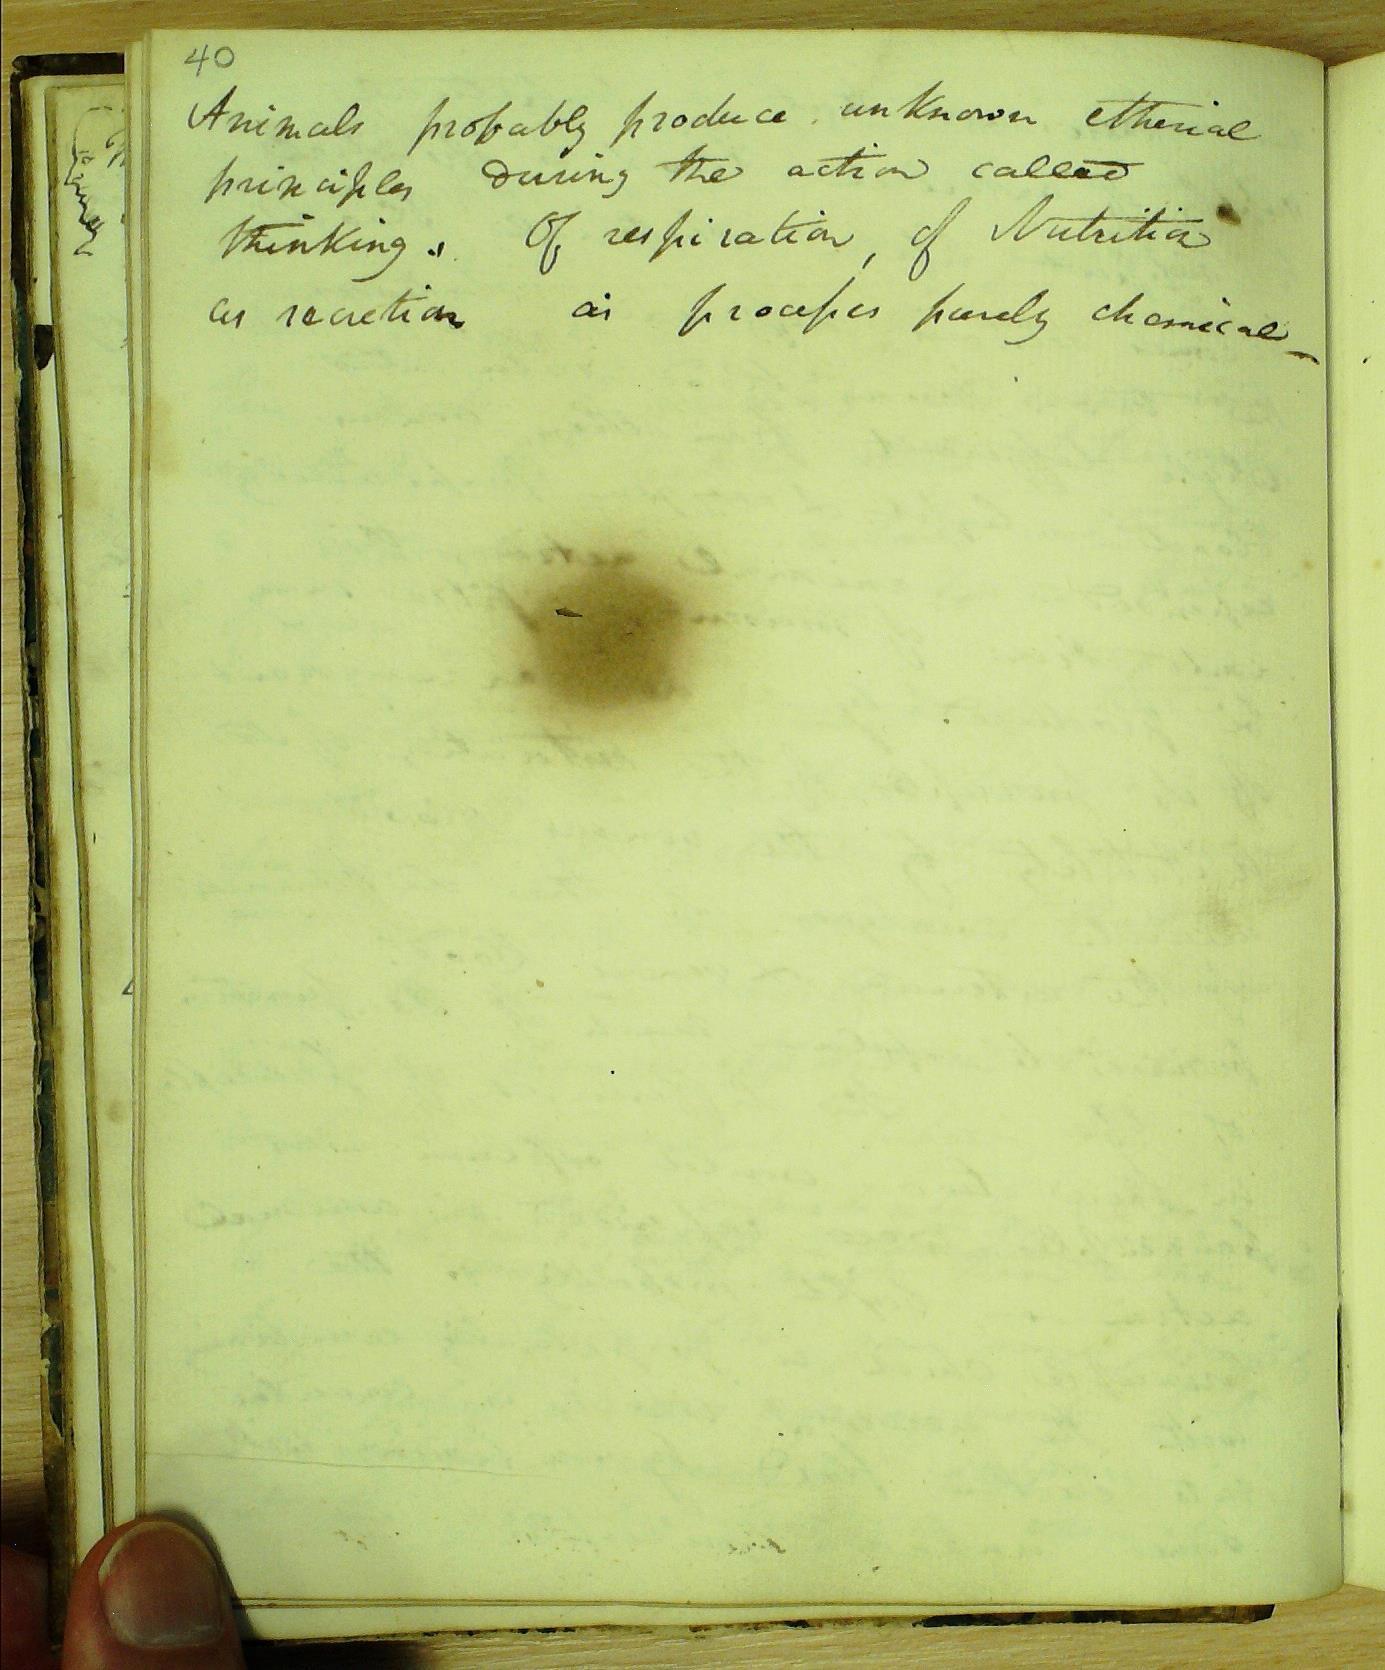 40
Animals probably produce unknown etherial
principles during the action called
thinking. Of respiration, of Nutrition
as secretion as processes purely chemical_